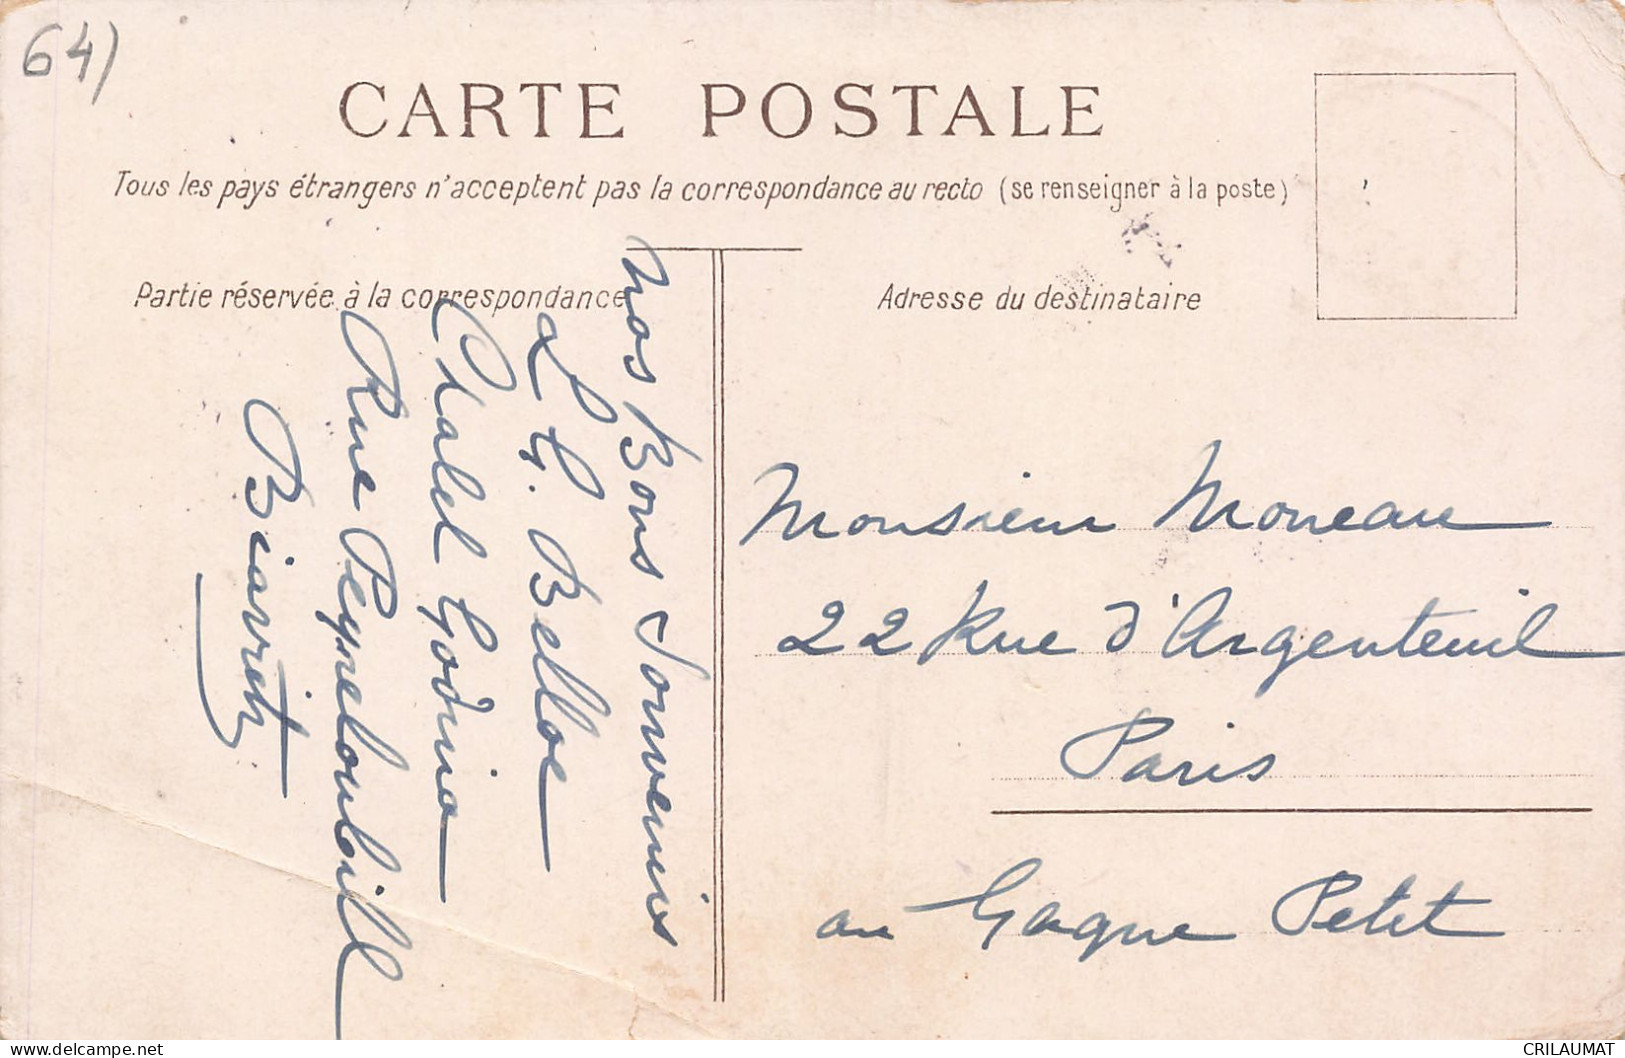 64)
CARTE POSTALE
Tous les pays étrangers n'acceptent pas la correspondance au recto (se renseigner à la poste)
Partie réservée à la correspondance
Adresse du destinataire
Nos Bons Souvenirs
Belloc
Chalet Godino
Rue Peyneloubill
Biarritz
Monsieur Moneau
22 Rue d'Argenteuil
Paris
au Gagne Petit
delcampe.net
CRILAUMAT